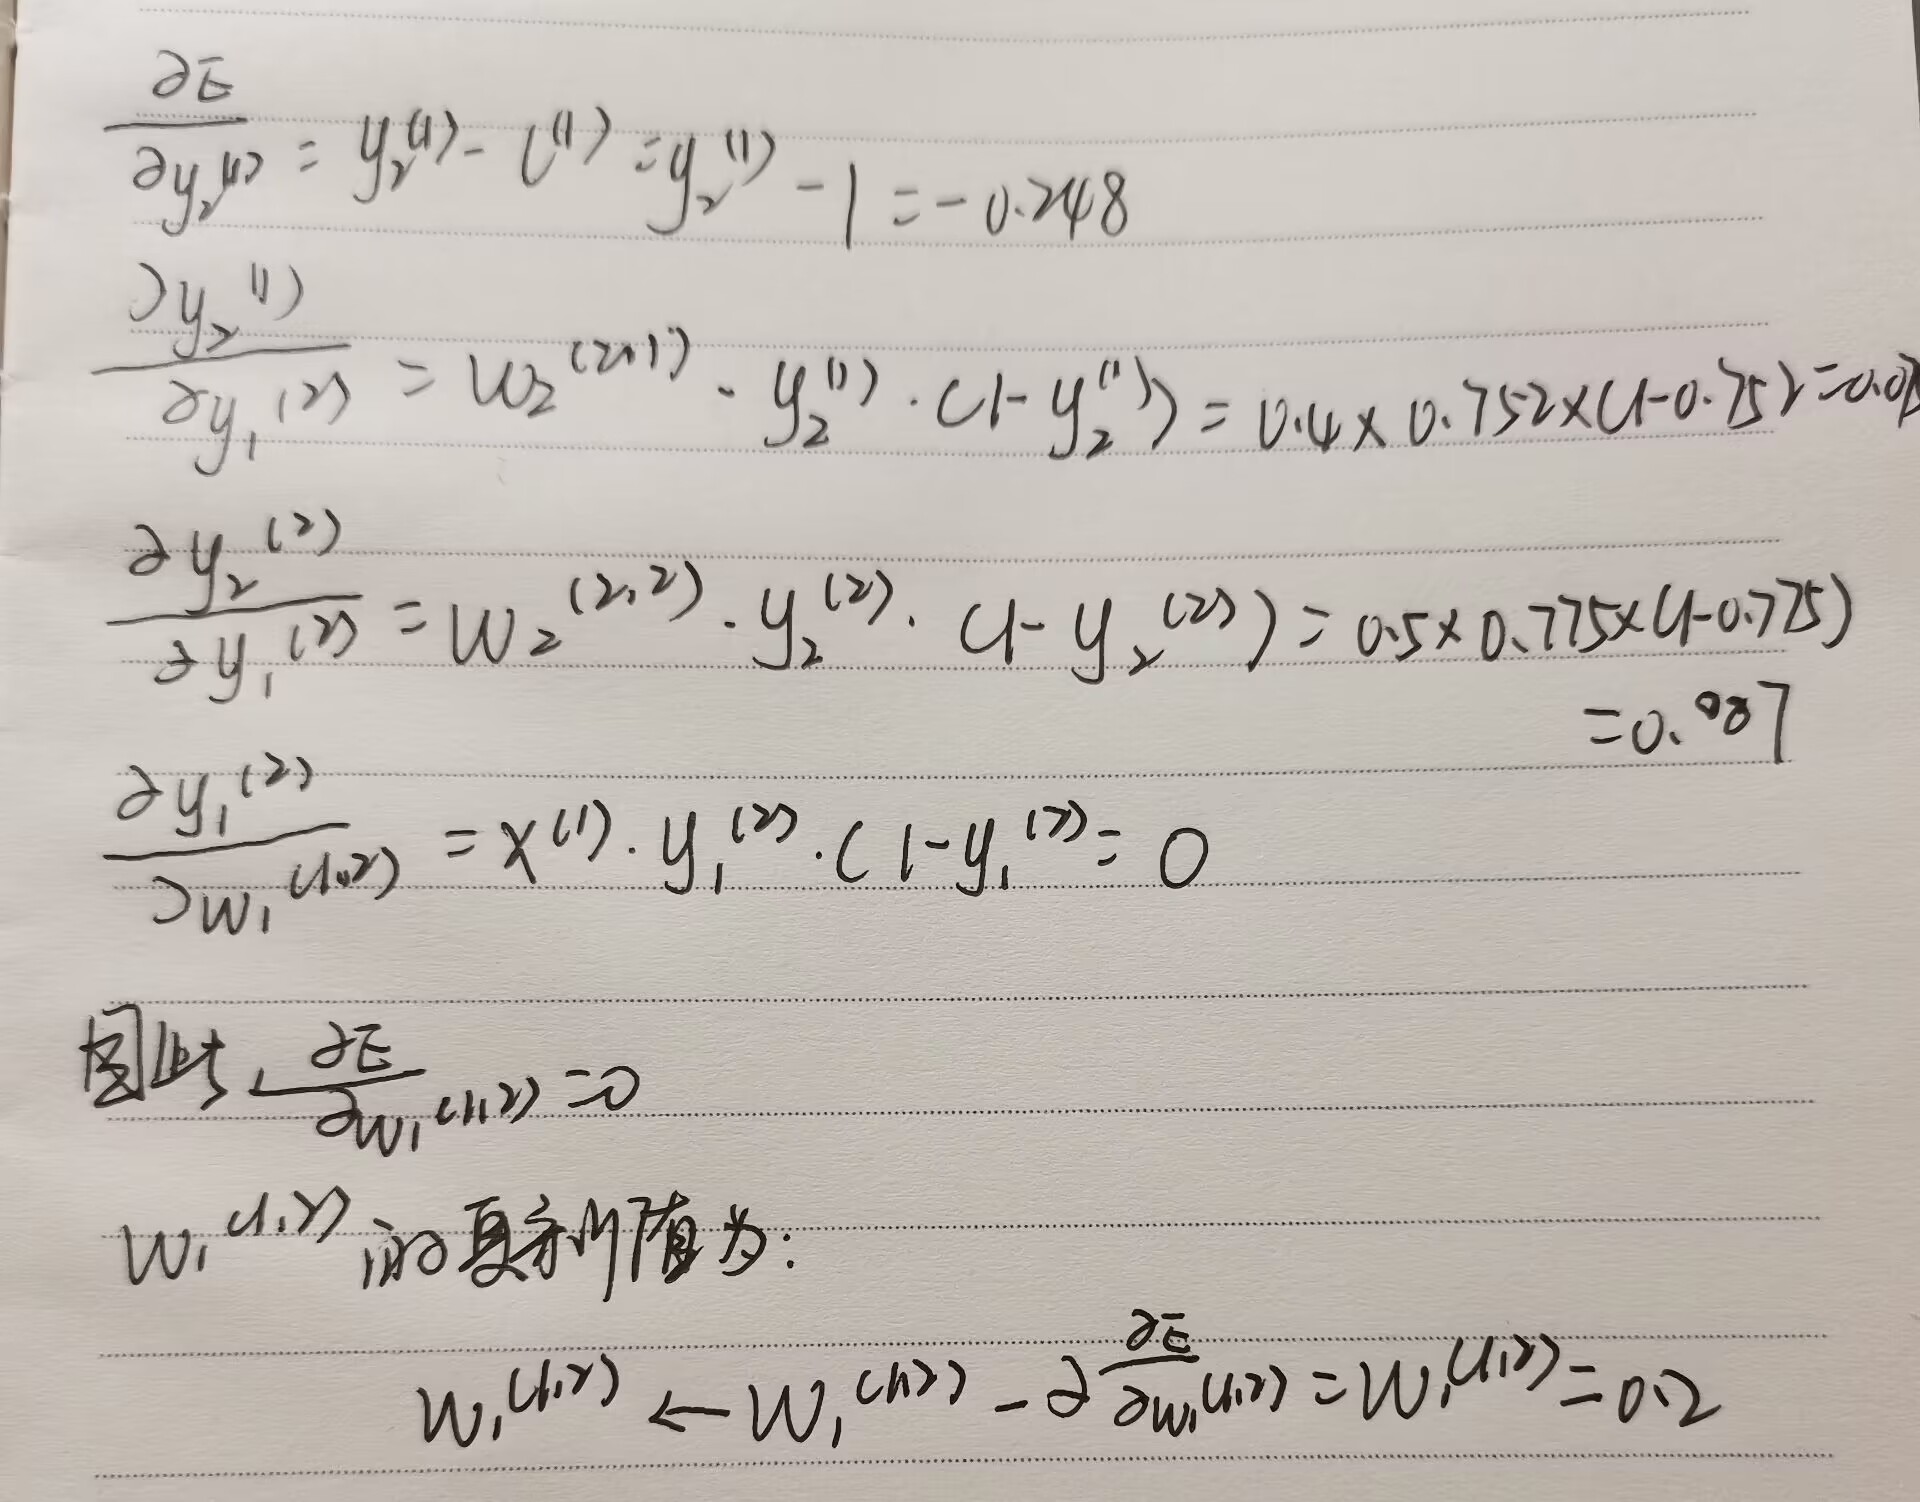 ∂E/∂y₂⁽¹⁾ = y₂⁽¹⁾ - l⁽¹⁾ = y₂⁽¹⁾ - 1 = -0.248
∂y₂⁽¹⁾/∂y₁⁽²⁾ = w₂⁽²,¹⁾ · y₂⁽¹⁾ · (1-y₂⁽¹⁾) = 0.4×0.752×(1-0.752=0.07
∂y₂⁽²⁾/∂y₁⁽²⁾ = w₂⁽²,²⁾ · y₂⁽²⁾ · (1-y₂⁽²⁾) = 0.5×0.775×(1-0.775)
=0.087
∂y₁⁽²⁾/∂w₁⁽¹,²⁾ = x⁽¹⁾ · y₁⁽²⁾ · (1-y₁⁽²⁾ = 0
因此, ∂E/∂w₁⁽¹,²⁾ = 0
w₁⁽¹,²⁾ 的更新值为:
w₁⁽¹,²⁾ ← w₁⁽¹,²⁾ - ∂ ∂E/∂w₁⁽¹,²⁾ = w₁⁽¹,²⁾ = 0.2